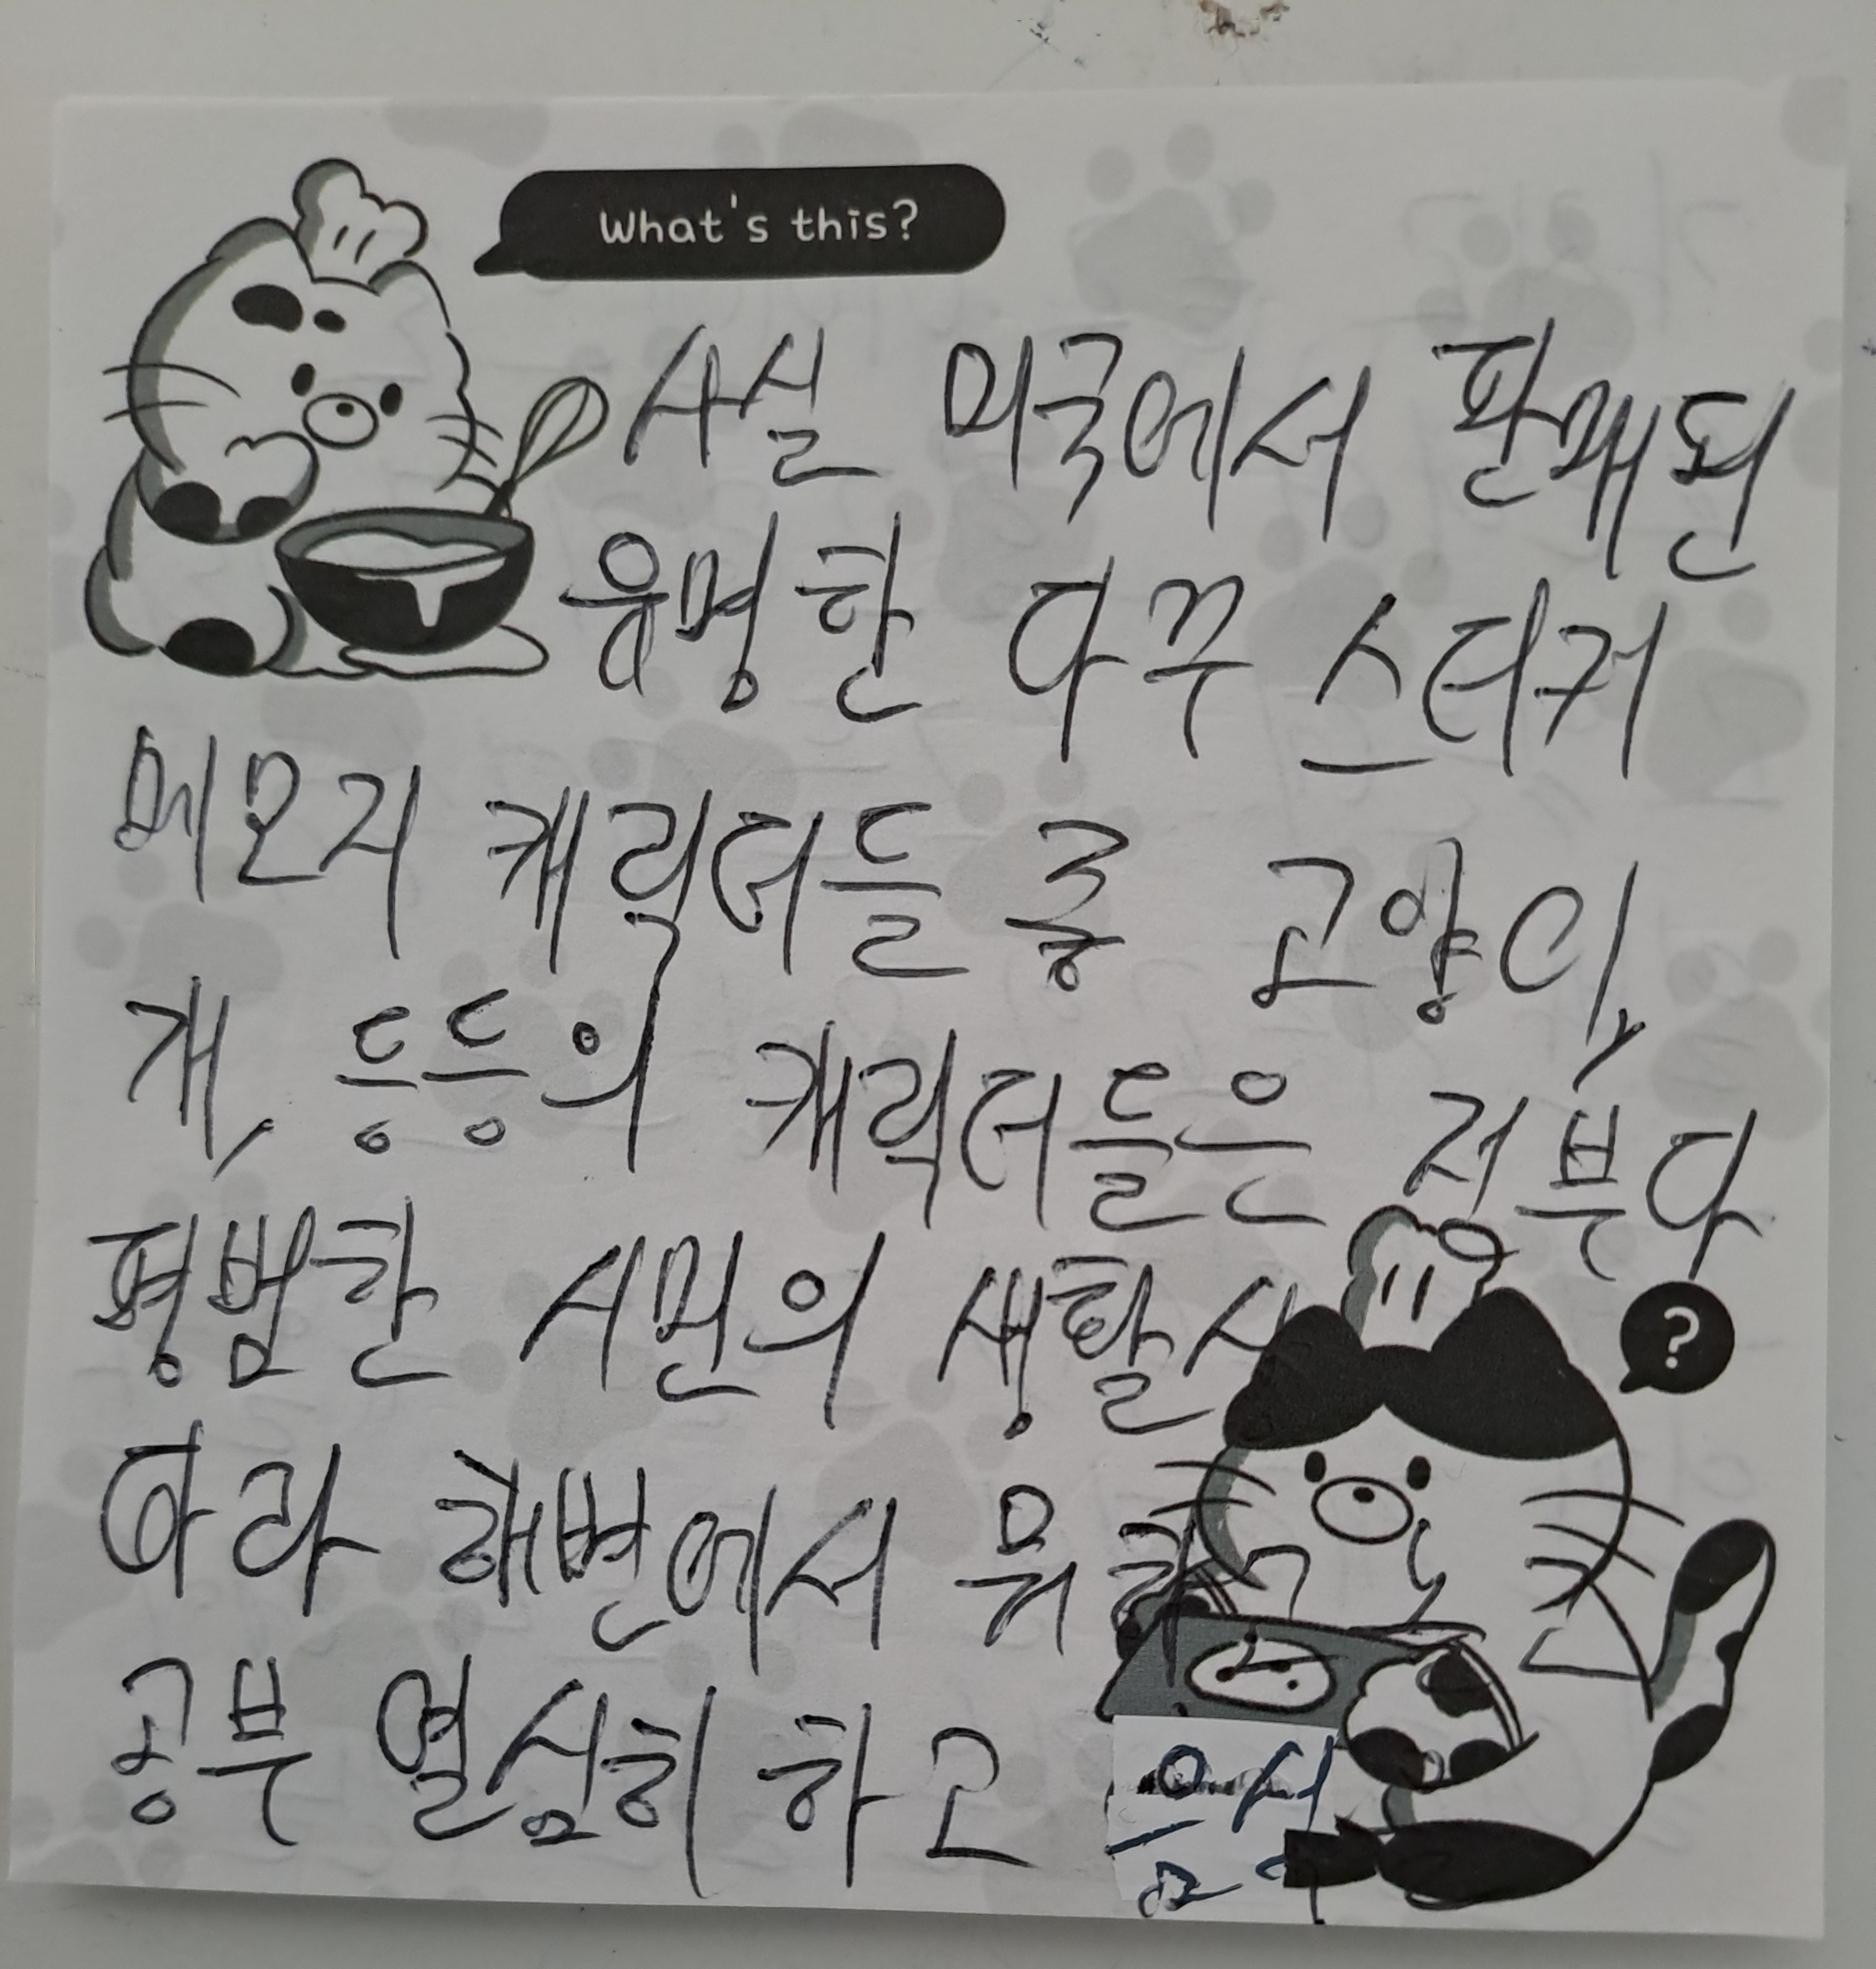 What's this?
사실 미국에서 판매된
유명한 다꾸 스티커
메모지 캐릭터들 중 고양이,
개, 등등의 캐릭터들은 전부다
평범한 시민의 생활사
?
아라 해변에서
공부 열심히 하고
음식